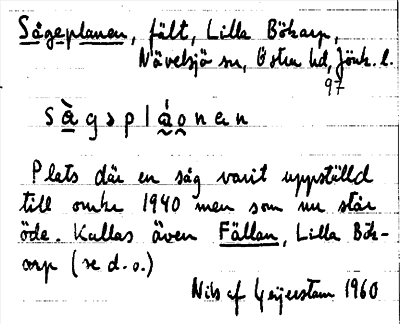 Sågeplanen, fält, Lilla Bökarp,
Nävelsjö sn, Östra hd, Jönk. l.
97
s à g ə p l á o n e n
Plats där en såg varit uppställd
till omkr 1940 men som nu står
öde. Kallas även Fällan, Lilla Bök-
arp (se d. o.)
Nils af Geijerstam 1960